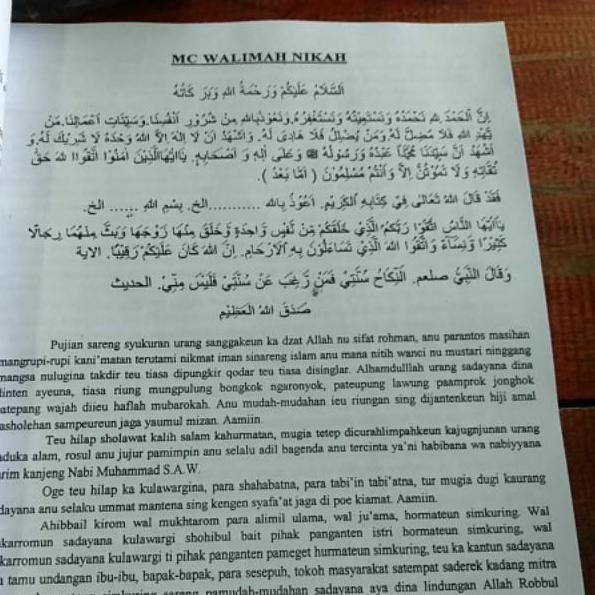 MC WALIMAH NIKAH
اَلسَّلاَمُ عَلَيْكُمْ وَرَحْمَةُ اللهِ وَبَرَ كَاتُهُ
اِنَّ الْحَمْدَ ِللهِ نَحْمَدُهُ وَنَسْتَعِيْنُهُ وَنَسْتَغْفِرُهُ.وَنَعُوْذُبِاللهِ مِنْ شُرُوْرِ اَنْفُسِنَا.وَسَيِّئَاتِ اَعْمَالِنَا.مَنْ
يَهْدِ اللهِ فَلاَ مُضِلَّ لَهُ.وَمَنْ يُضْلِلْ فَلاَ هَادِىَ لَهُ. وَاَشْهَدُ اَنْ لاَ إِلهَ إِلاَّ اللهُ وَحْدَهُ لاَ شَرِيْكَ لَهُ.وَ
أَشْهَدُ اَنَّ سَيِّدَنَا مُحَمَّدًا عَبْدُهُ وَرَسُوْلُهُ ﷺ وَعَلَى اَلِهِ وَ اَصْحَابِهِ. يَااَيُّهَاالَّذِيْنَ اَمَنُوْا اتَّقُوْا اللهَ حَقَّ
تُقَاتِهِ وَلاَ تَمُوْتُنَّ اِلاَّ وَاَنْتُمْ مُسْلِمُوْنَ ( اَمَّا بَعْدُ ).
فَقَدْ قَالَ اللهُ تَعَالَى فِيْ كِتَابِهِ الْكَرِيْمِ. اَعُوْذُ بِالله ...........الخ. بِسْمِ اللهِ ...... الخ.
يَااَيُّهَا النَّاسُ اتَّقُوْا رَبَّكُمُ الَّذِيْ خَلَقَكُمْ مِّنْ نَّفْسٍ وَاحِدَةٍ وَّخَلَقَ مِنْهَا زَوْجَهَا وَبَثَّ مِنْهُمَا رِجَالاً
كَثِيْرًا وَّنِسَآءً وَاتَّقُوا اللهَ الَّذِيْ تَسَاءَلُوْنَ بِهِ اْلاَرْحَامِ. اِنَّ اللهَ كَانَ عَلَيْكُمْ رَقِيْبًا. الاية
وَقَالَ النَّبِيُّ صلعم. النِّكَاحُ سُنَّتِيْ فَمَنْ رَّغِبَ عَنْ سُنَّتِيْ فَلَيْسَ مِنِّيْ. الحديث
صَدَقَ اللهُ الْعَظِيْمِ
Pujian sareng syukuran urang sanggakeun ka dzat Allah nu sifat rohman, anu parantos masihan
mangrupi-rupi kani'matan terutami nikmat iman sinareng islam anu mana nitih wanci nu mustari ninggang
mangsa nulugina takdir teu tiasa dipungkir qodar teu tiasa disinglar. Alhamdulllah urang sadayana dina
dinten ayeuna, tiasa riung mungpulung bongkok ngaronyok, pateupung lawung paamprok jonghok
patepang wajah diieu haflah mubarokah. Anu mudah-mudahan ieu riungan sing dijantenkeun hiji amal
asholehan sampeureun jaga yaumul mizan. Aamiin.
Teu hilap sholawat kalih salam kahurmatan, mugia tetep dicurahlimpahkeun kajugnjunan urang
aduka alam, rosul anu jujur pamimpin anu selalu adil bagenda anu tercinta ya'ni habibana wa nabiyyana
arim kanjeng Nabi Muhammad S.A.W.
Oge teu hilap ka kulawargina, para shahabatna, para tabi'in tabi'atna, tur mugia dugi kaurang
dayana anu selaku ummat mantena sing kengen syafa'at jaga di poe kiamat. Aamiin.
Ahibbail kirom wal mukhtarom para alimil ulama, wal ju'ama, hormateun simkuring. Wal
karromun sadayana kulawargi shohibul bait pihak panganten istri hormateun simkuring, wal
karromun sadayana kulawargi ti pihak panganten pameget hurmateun simkuring, teu ka kantun sadayana
tamu undangan ibu-ibu, bapak-bapak, para sesepuh, tokoh masyarakat satempat saderek kadang mitra
simkuring sareng pamudah-mudahan sadayana aya dina lindungan Allah Robbul